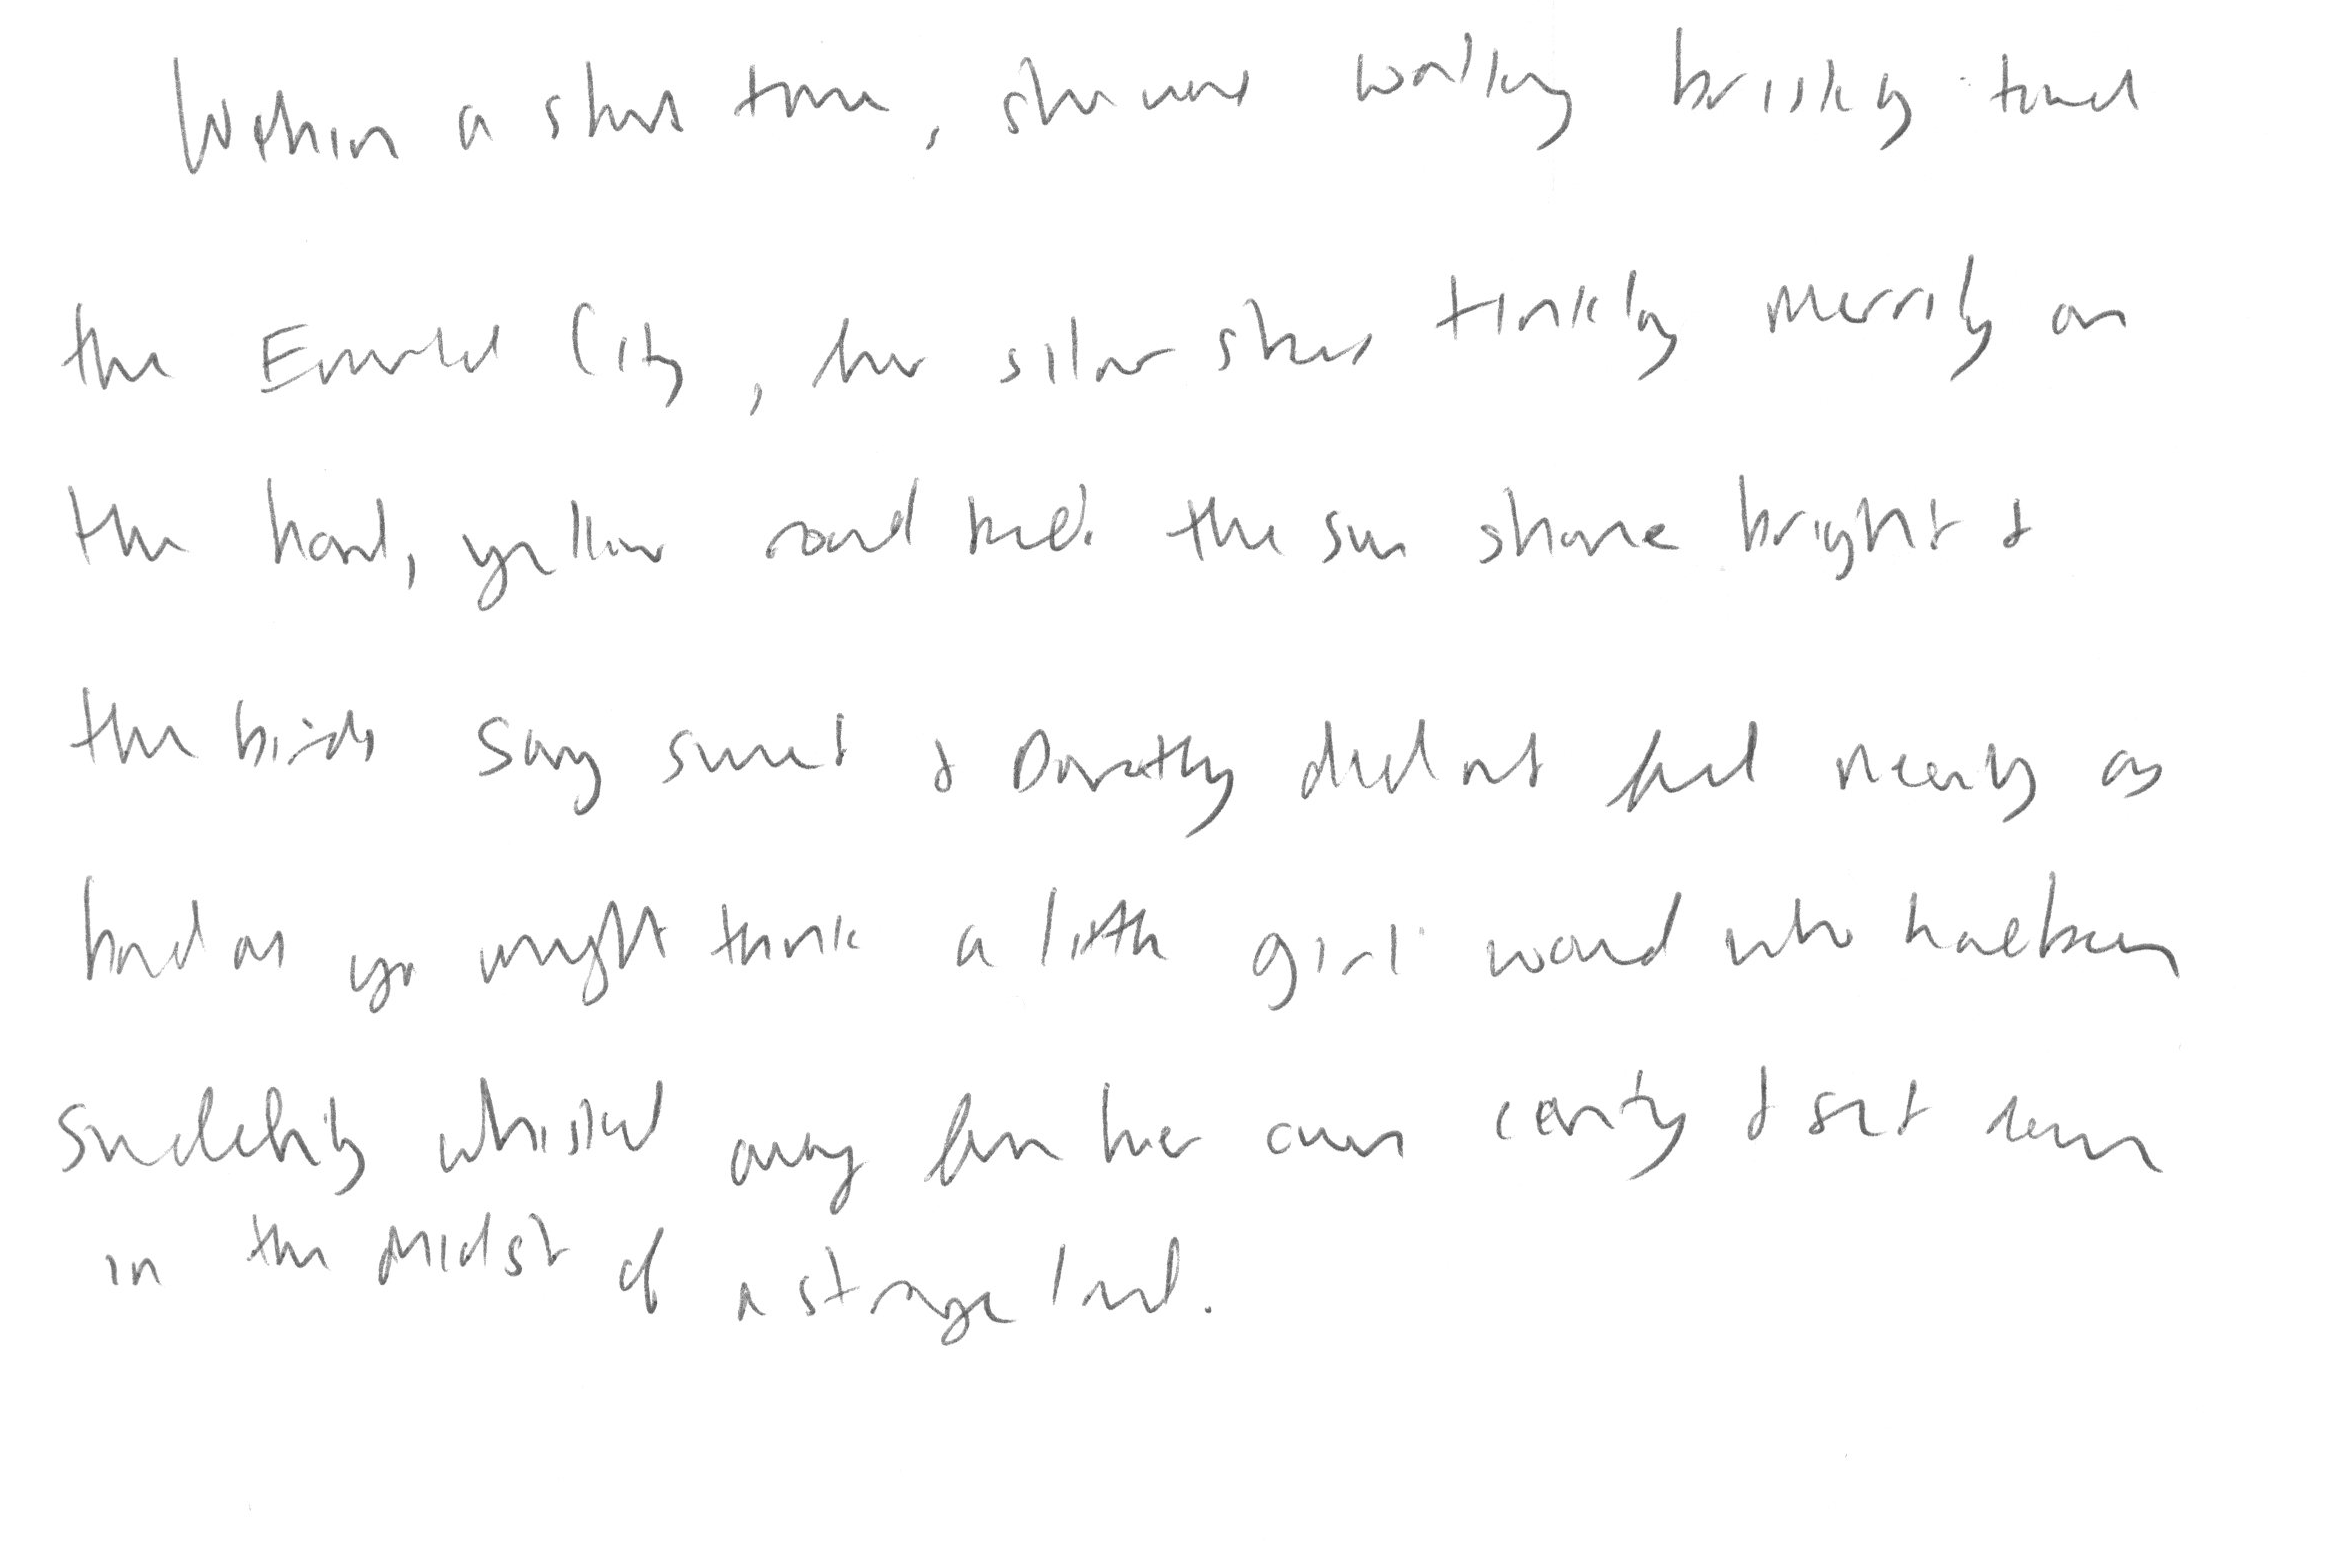 Within a short time, she was walking briskly toward
the Emerald City, her silver shoes tinkling merrily on
the hard, yellow road bed. the sun shone bright &
the birds sang sweet & Dorothy did not feel nearly as
bad as you might think a little girl would who had been
suddenly whisked away from her own country & set down
in the midst of a strange land.